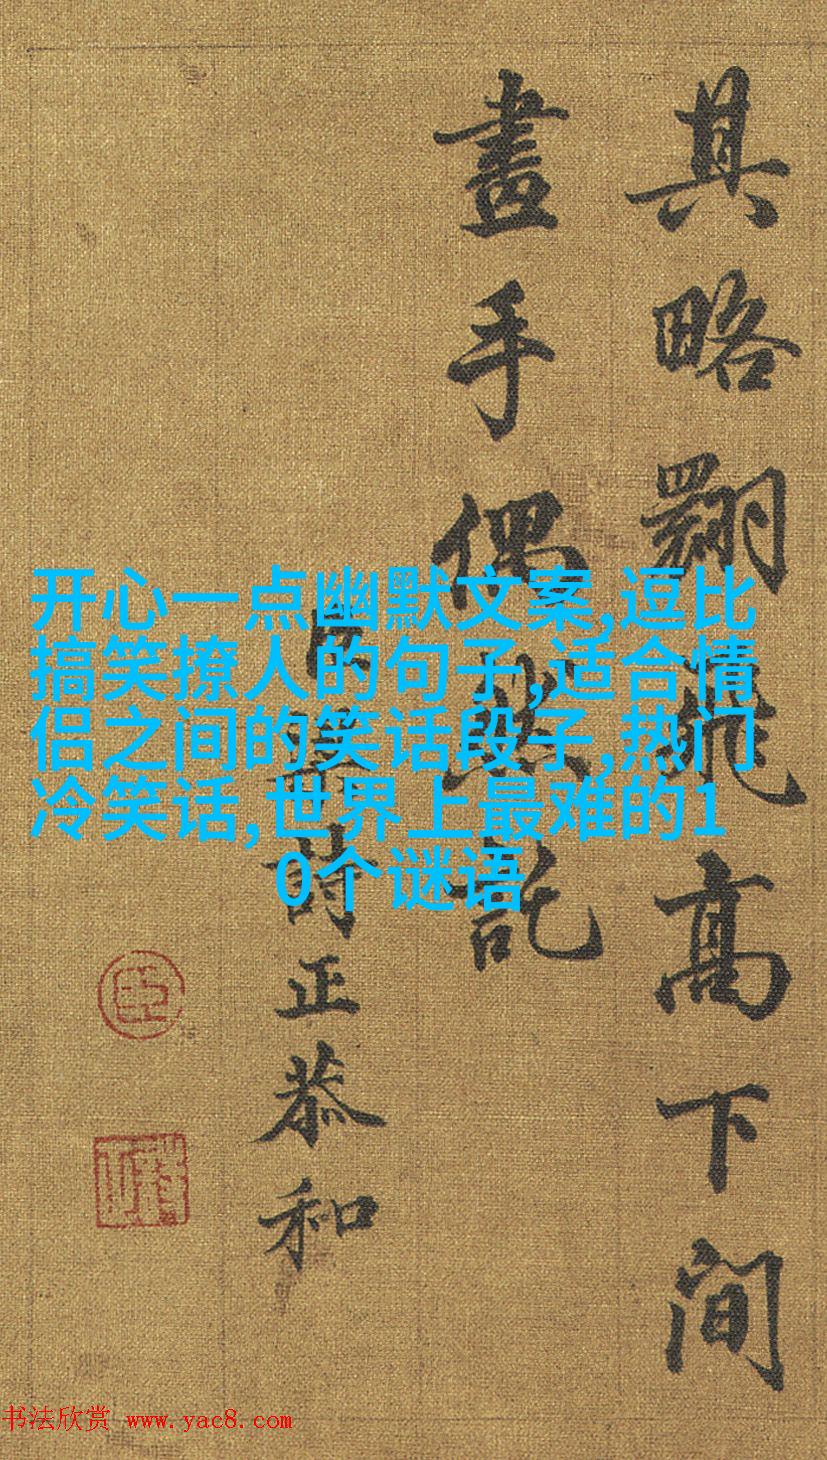 其略翾飛高下間
畫手偶然託
臣梁詩正恭和
开心一点幽默文案,逗比
搞笑撩人的句子,适合情
侣之间的笑话段子,热门
冷笑话,世界上最难的1
0个谜语
臣
书法欣赏 www.yac8.com